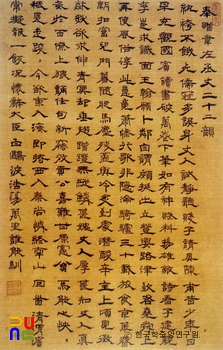 奉贈韋左丞丈二十二韻
紈袴不餓死儒冠多誤身丈人試靜聽賤子請具陳甫昔少年日
早充觀國賓讀書破萬卷下筆如有神賦料揚雄敵詩看子建親
李邕求識面王翰願卜鄰自謂頗挺出立登要路津致君堯舜上
再使風俗淳此意竟蕭條行歌非隱淪騎驢三十載旅食京華春
朝扣富兒門暮隨肥馬塵殘杯與冷炙到處潛悲辛主上頃見徵
欻然欲求伸青冥却垂翅蹭蹬無縱鱗甚愧丈人厚甚知丈人真
每於百僚上猥誦佳句新竊效貢公喜難甘原憲貧焉能心怏怏
祗是走踆踆今欲東入海即將西去秦尚憐終南山回首清渭濱
常擬報一飯況懷辭大臣白鷗波浩蕩萬里誰能馴
© 한국학중앙연구원